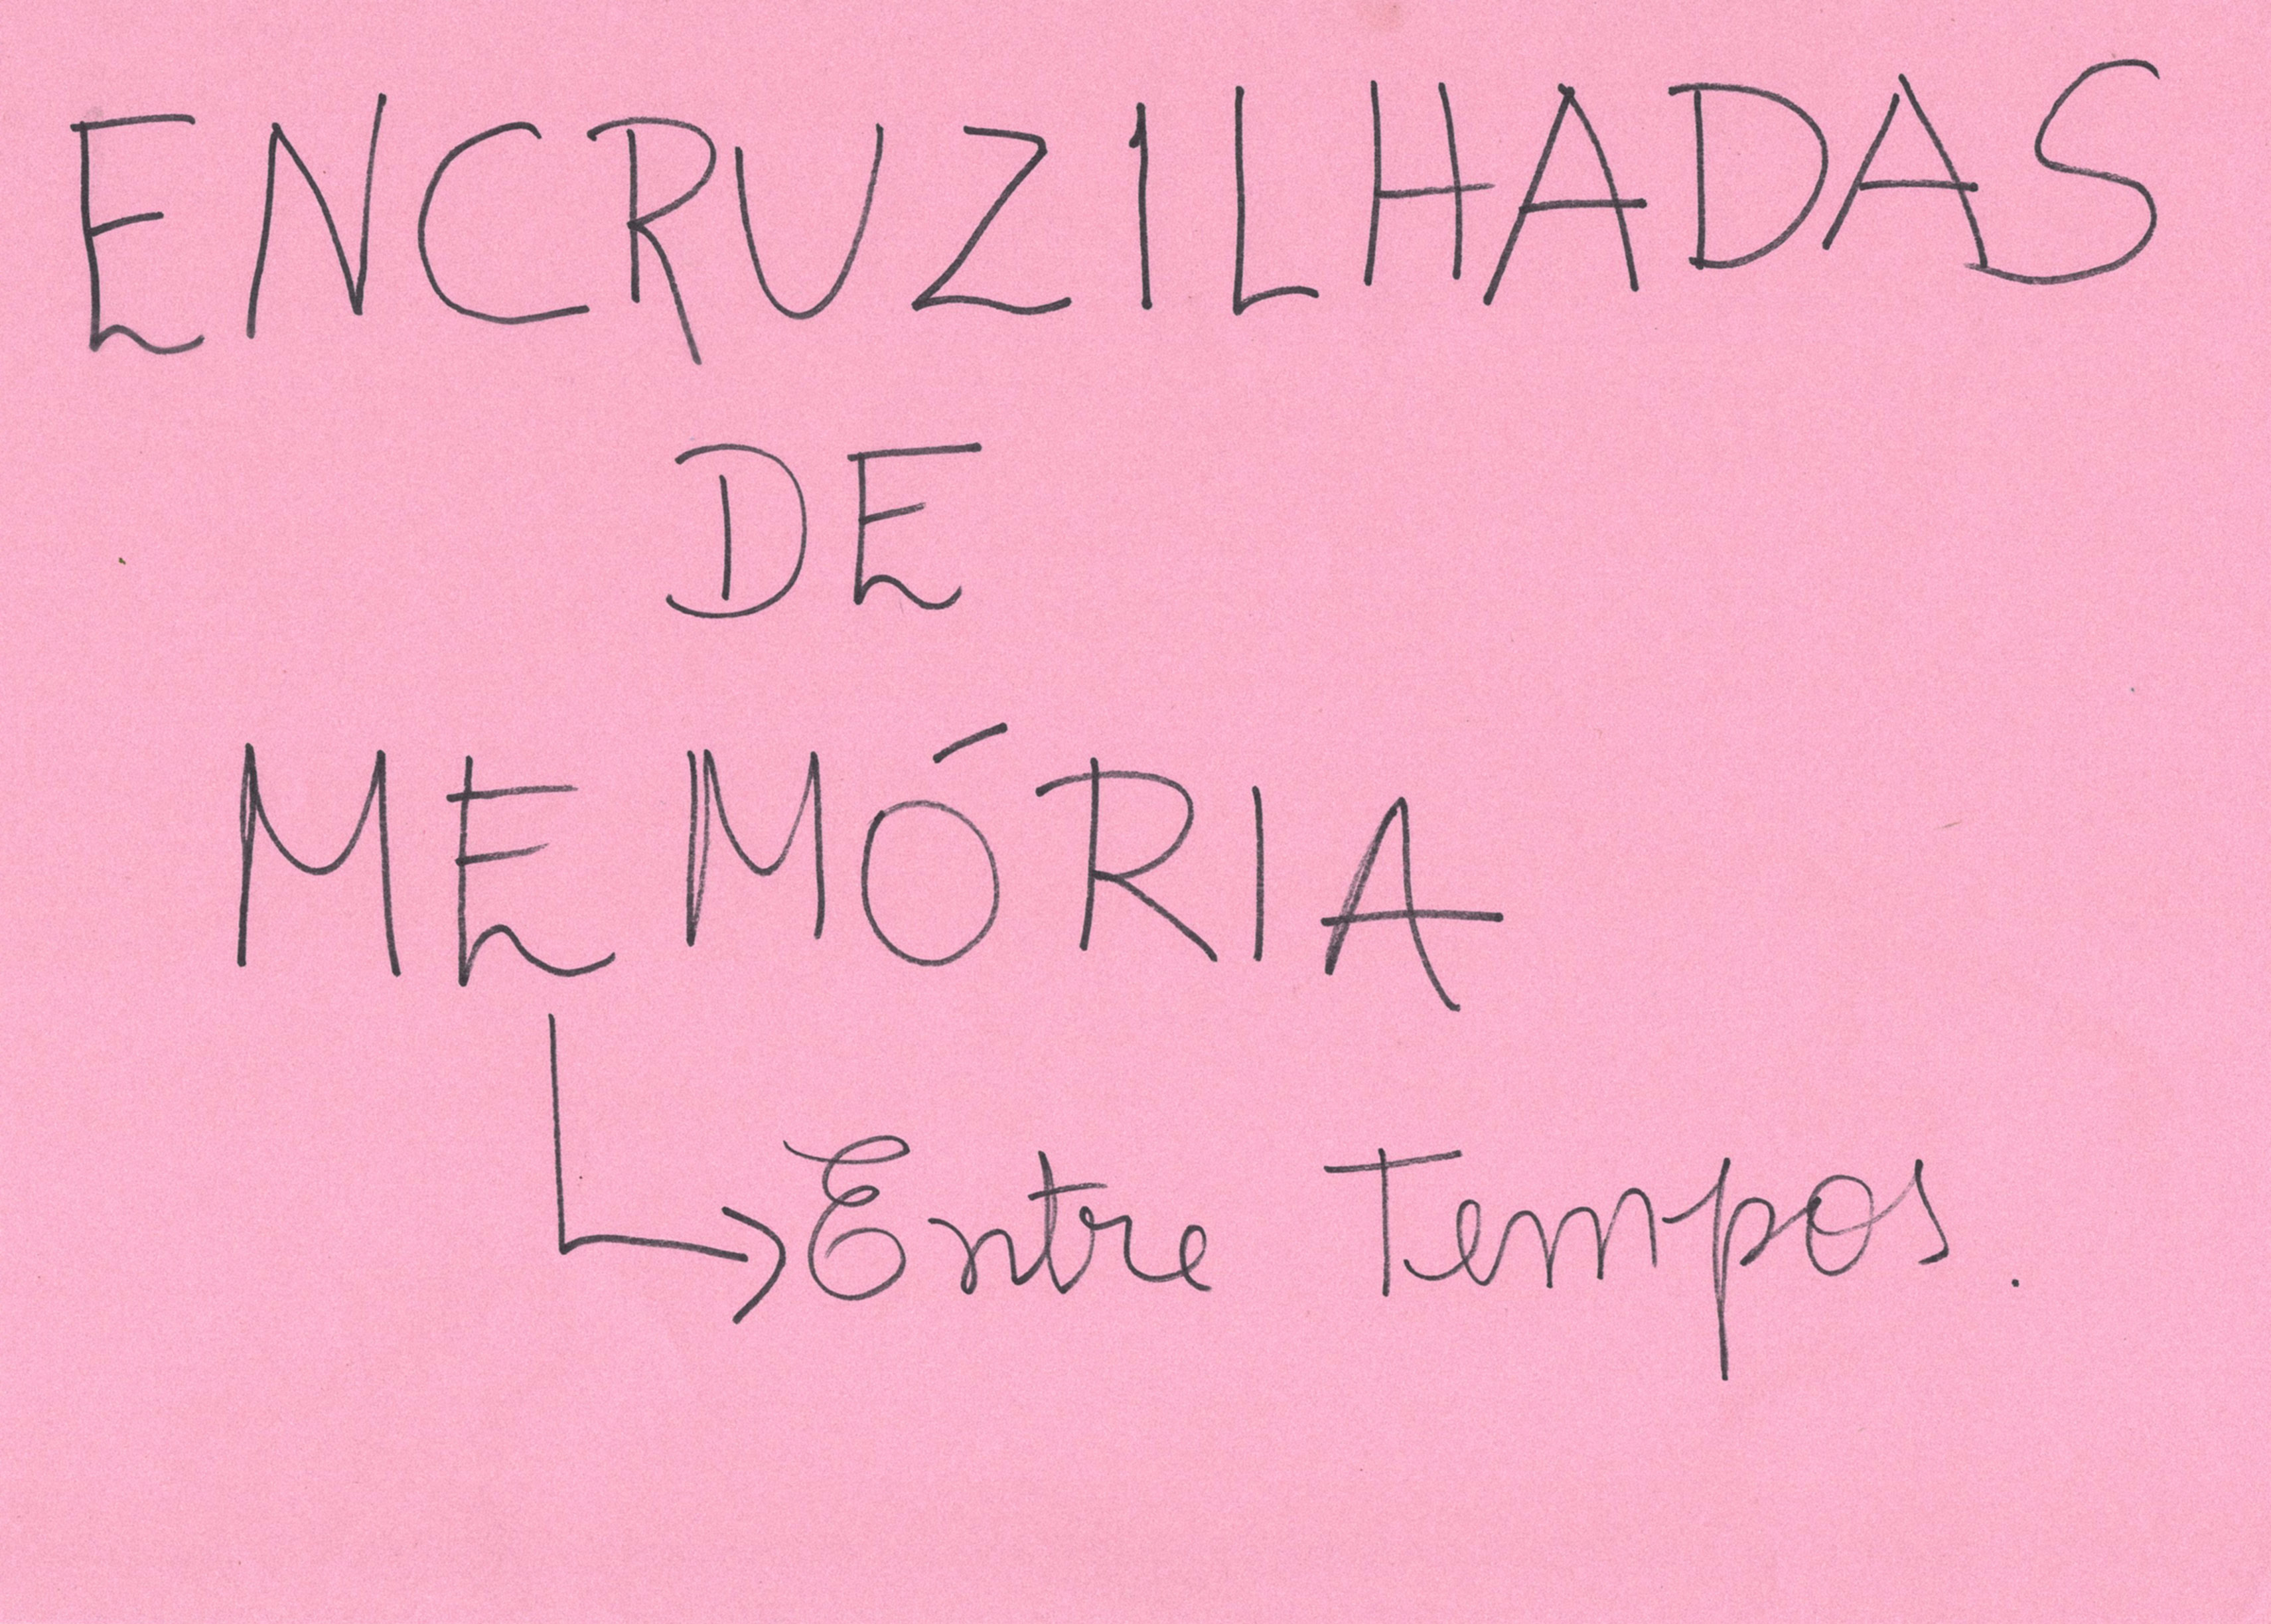 ENCRUZILHADAS
DE
MEMÓRIA
→ Entre Tempos.